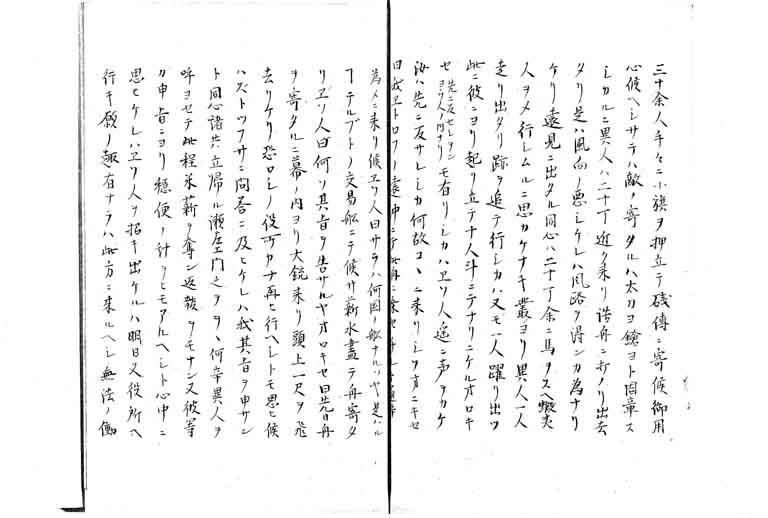 三十余人手々ニ小旗ヲ押立テ磯傳ニ寄候御用
心候ヘシサテハ敵ノ寄タルハ太刀ヨ鎗ヨト周章ス
シカルニ異人ハ二十丁近ク来リ諸舟ニ打ノリ出去
タリ是ハ風向ノ悪シケレハ風路ヲ得ンカ為ナリ
ケリ遠見ニ出タル同心ハ二十丁余ニ馬ヲスヘ蝦夷
人ヲメ行シムルニ思カケナキ叢ヨリ異人一人
走リ出タリ跡ヲ追テ行シカハ又モ一人躍リ出ツ
此ニ彼ニヨリ起リ立テ十人斗ニテナリニケルオロキ
セ モ有リシカハヱソ人遥ニ声ヲカケ
汝ハ先ニ反サレシカ何故コヽニ来リシヲオニキセ
曰我ヱトロフノ遠沖ニテ此舟ニ乗セ
為メニ来リ候ヱソ人曰サラハ何国ノ船ナルソヤ是ハル
テルブトノ交易船ニテ候ガ薪水盡テ舟寄タ
リヱソ人曰何ソ其旨ヲ告サルヤオロキセ曰先日舟
ヲ寄タルニ幕ノ内ヨリ大銃来リ頭上一尺ヲ飛
去リケリ恐ロシノ役所カナ再ヒ行ヘシトモ思ヒ候
ハズトツフサニ問荅ニ及ヒケレハ我其旨ヲ申サン
ト同心諸共立帰ル瀬左エ門之ヲ何卒異人ヲ
呼ヨセテ此程米薪ヲ奪ン返報ヲモナシ又彼等
カ申旨ニヨリ穏便ノ計ラヒモアルヘシト心中ニ
思ヒケレハヱソ人ヲ招キ出ケルハ明日又役所ヘ
行キ願ノ趣有ナラハ此方ニ来ルヘシ無法ノ働